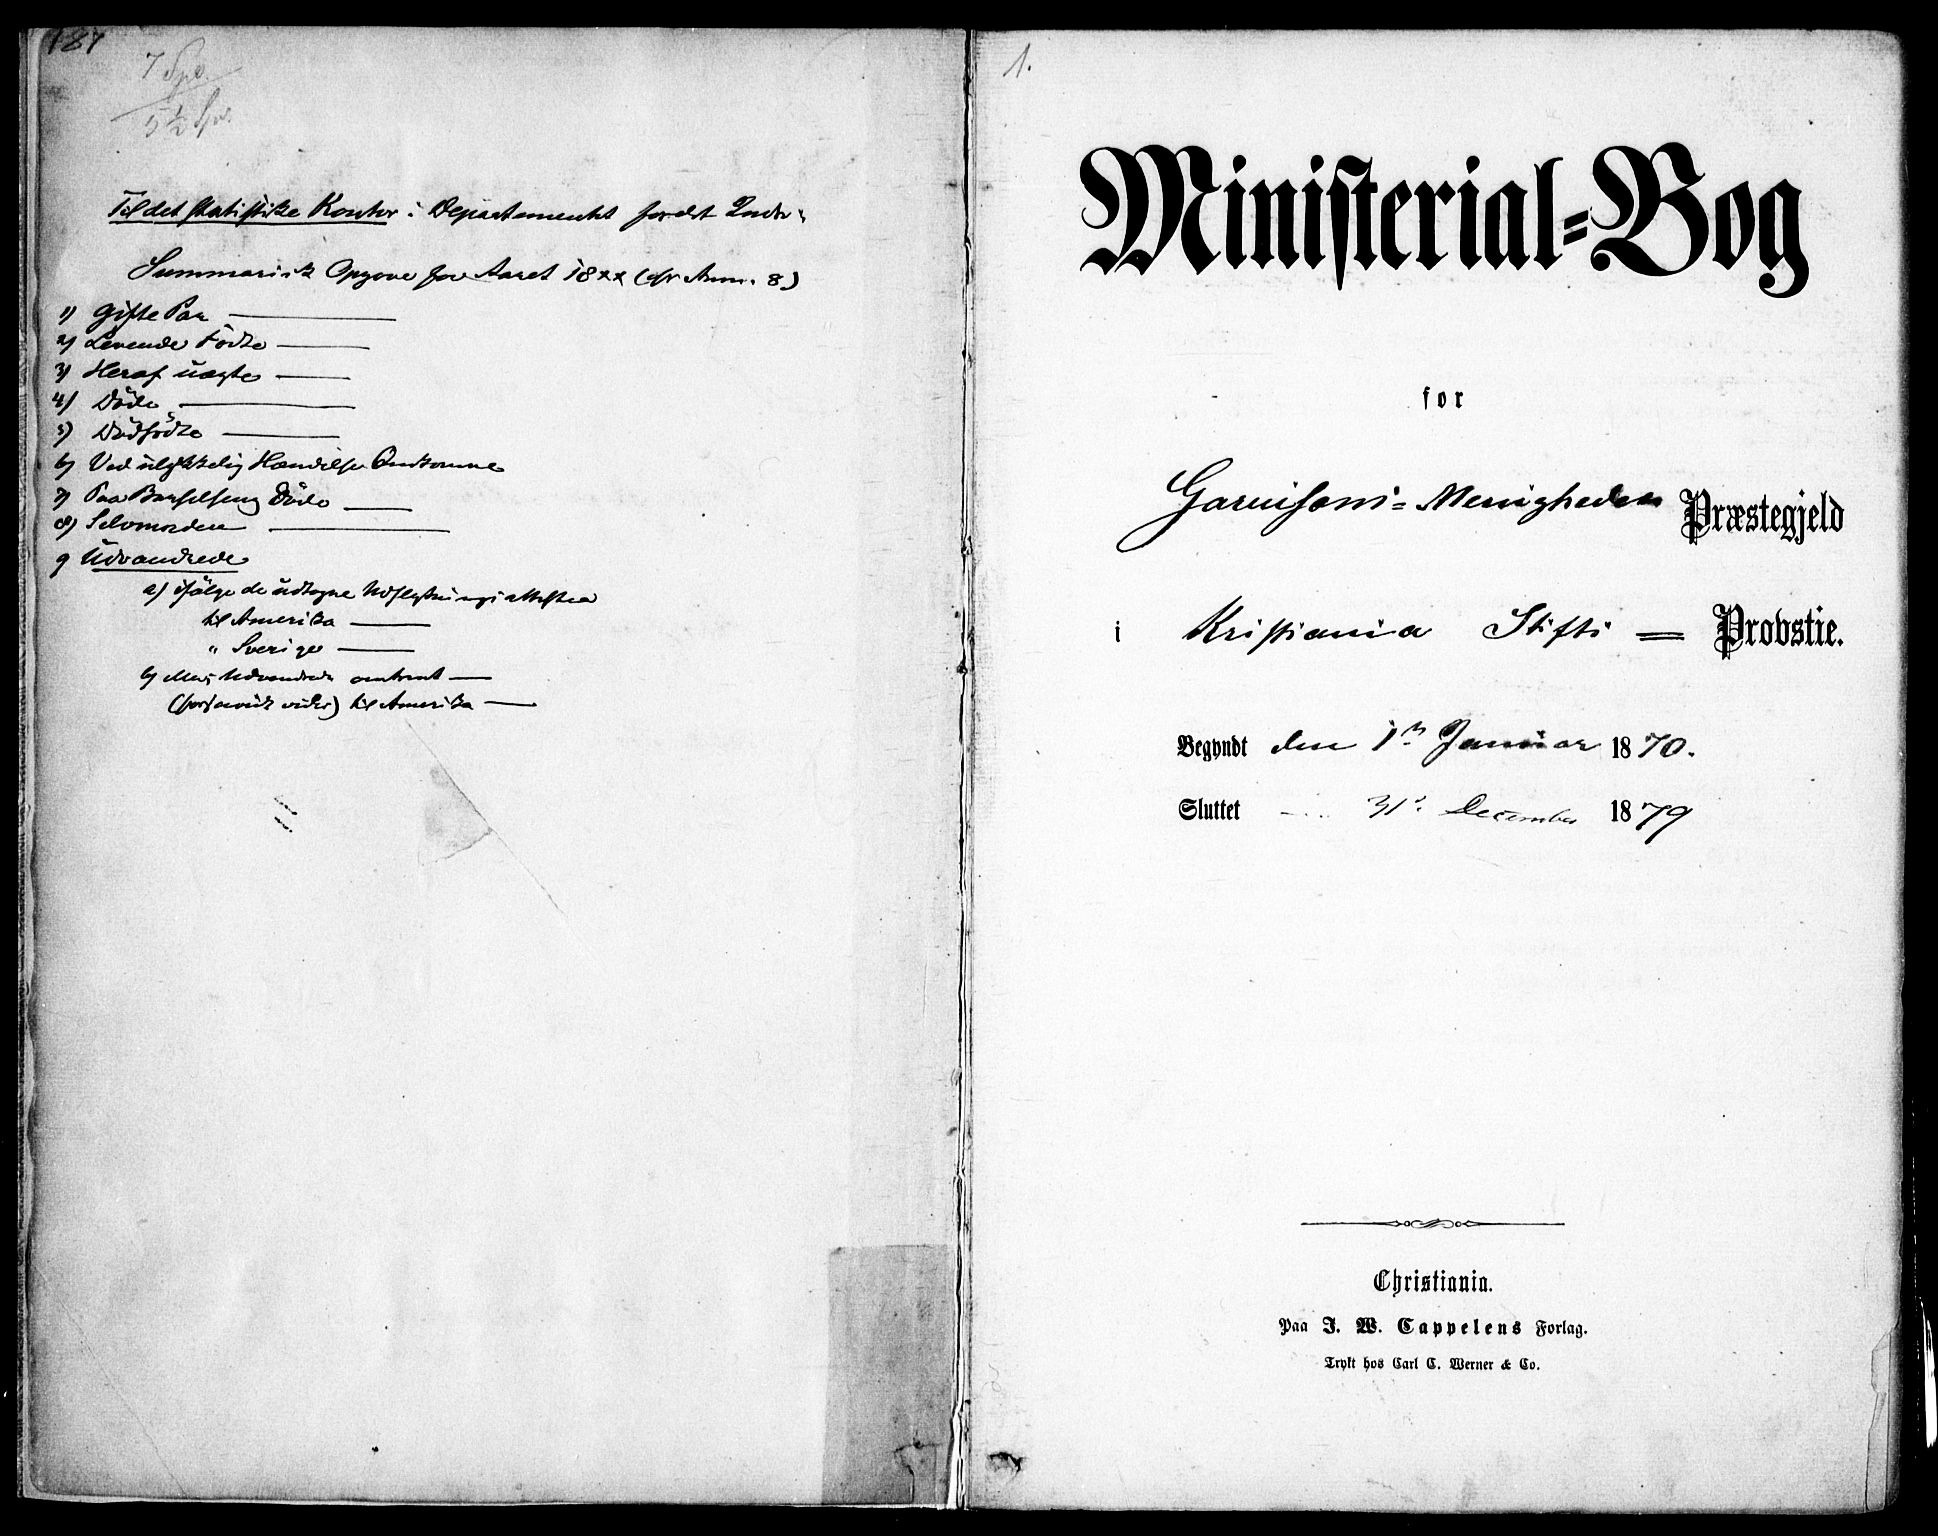 187
7 Spd.
5½ Spd.
Til det statistiske Kontor i Departementet for det Indre.
Summarisk Opgave for Aaret 18xx (cfr Anm. 8)
1) Gifte Par
2) Levende Födte
3) Heraf uægte
4) Döde
5) Dödfödte
6) Ved ulykkelig Hændelse Omkomne
7) Paa Barselseng Döde
8) Selvmordere
9 Udvandrede
a) ifölge de udtagne Udflytningsattester
til Amerika
" Sverige
b) Udvandrede omtrent
til Amerika
1.
Ministerial=Bog
for
Garnisons=Menigheden Præstegjeld
i Kristiania Stifts = Provstie.
Begyndt den 1ste Januar 1870.
Sluttet 31. December 1879
Christiania.
Paa J. W. Cappelens Forlag.
Trykt hos Carl C. Werner & Co.